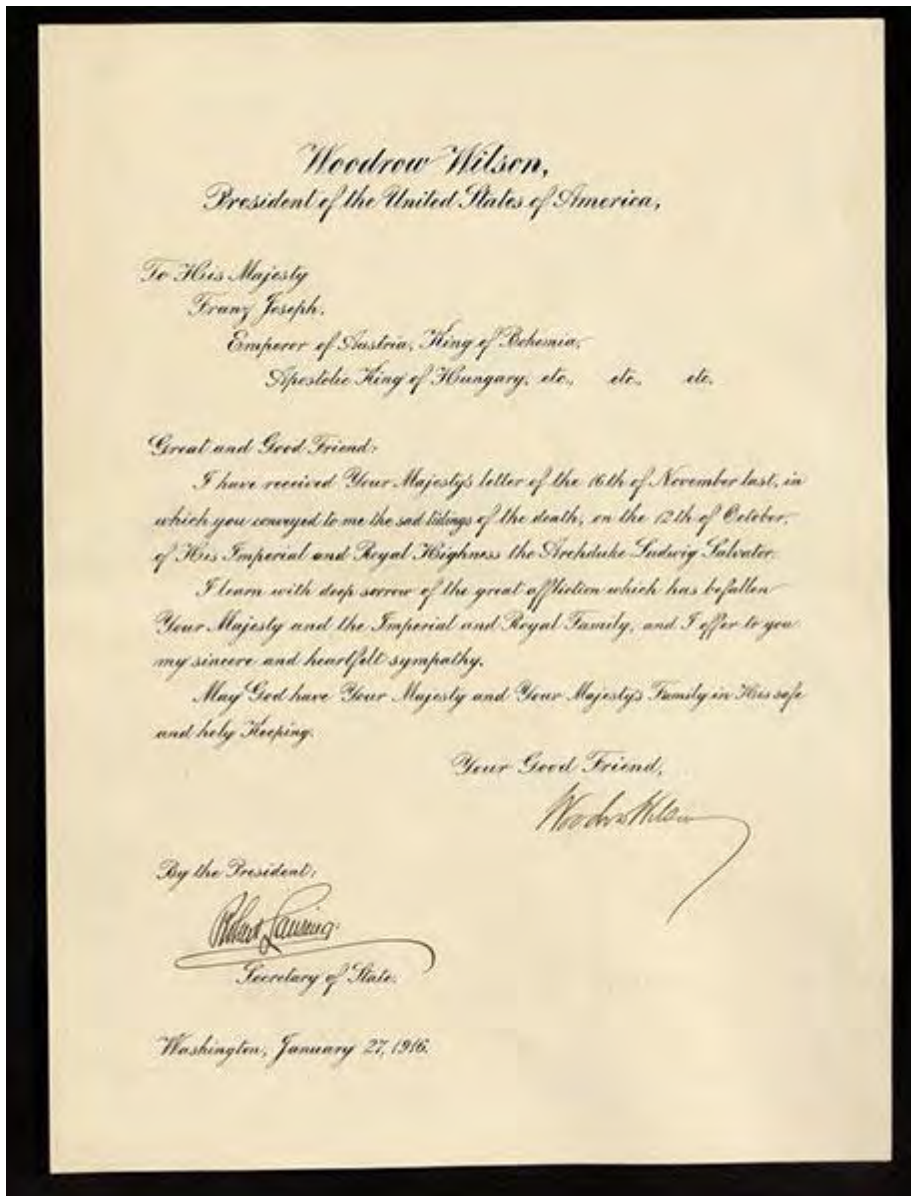 Woodrow Wilson,
President of the United States of America,
To His Majesty
Franz Joseph,
Emperor of Austria, King of Bohemia,
Apostolic King of Hungary, etc., etc., etc.
Great and Good Friend:
I have received Your Majesty's letter of the 16th of November last, in
which you conveyed to me the sad tidings of the death, on the 12th of October,
of His Imperial and Royal Highness the Archduke Ludwig Salvator.
I learn with deep sorrow of the great affliction which has befallen
Your Majesty and the Imperial and Royal Family, and I offer to you
my sincere and heartfelt sympathy.
May God have Your Majesty and Your Majesty's Family in His safe
and holy Keeping.
Your Good Friend,
Woodrow Wilson
By the President:
Robert Lansing
Secretary of State.
Washington, January 27, 1916.